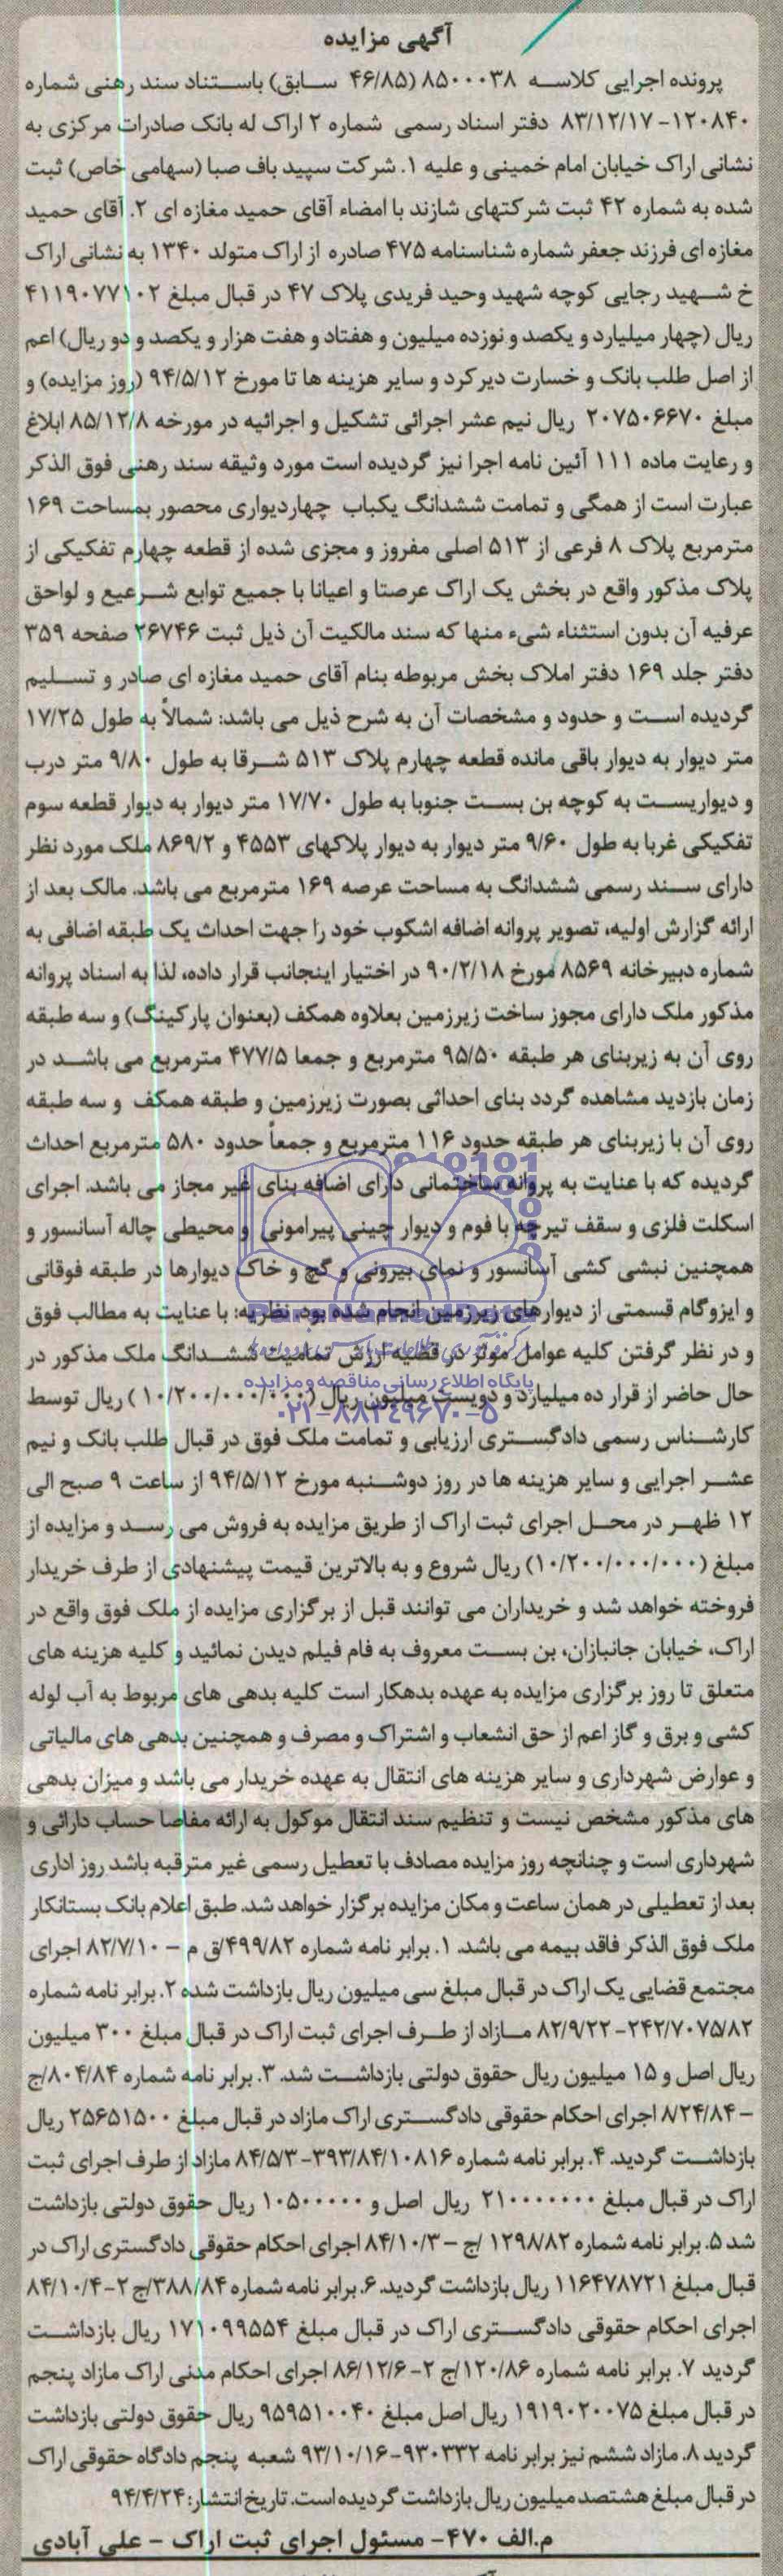 آگهی مزایده
پرونده اجرایی کلاسه ۸۵۰۰۰۳۸ (۴۶/۸۵ سابق) باستناد سند رهنی شماره
۱۲۰۸۴۰-۸۳/۱۲/۱۷ دفتر اسناد رسمی شماره ۲ اراک له بانک صادرات مرکزی به
نشانی اراک خیابان امام خمینی و علیه ۱. شرکت سپید باف صبا (سهامی خاص) ثبت
شده به شماره ۴۲ ثبت شرکتهای شازند با امضاء آقای حمید مغازه ای ۲. آقای حمید
مغازه ای فرزند جعفر شماره شناسنامه ۴۷۵ صادره از اراک متولد ۱۳۴۰ به نشانی اراک
خ شهید رجایی کوچه شهید وحید فریدی پلاک ۴۷ در قبال مبلغ ۴۱۱۹۰۷۷۱۰۲
ریال (چهار میلیارد و یکصد و نوزده میلیون و هفتاد و هفت هزار و یکصد و دو ریال) اعم
از اصل طلب بانک و خسارت دیرکرد و سایر هزینه ها تا مورخ ۹۴/۵/۱۲ (روز مزایده) و
مبلغ ۲۰۷۵۰۶۶۷۰ ریال نیم عشر اجرائی تشکیل و اجرائیه در مورخه ۸۵/۱۲/۸ ابلاغ
و رعایت ماده ۱۱۱ آئین نامه اجرا نیز گردیده است مورد وثیقه سند رهنی فوق الذکر
عبارت است از همگی و تمامت ششدانگ یکباب چهاردیواری محصور بمساحت ۱۶۹
مترمربع پلاک ۸ فرعی از ۵۱۳ اصلی مفروز و مجزی شده از قطعه چهارم تفکیکی از
پلاک مذکور واقع در بخش یک اراک عرصتا و اعیانا با جمیع توابع شرعیع و لواحق
عرفیه آن بدون استثناء شیء منها که سند مالکیت آن ذیل ثبت ۲۶۷۴۶ صفحه ۳۵۹
دفتر جلد ۱۶۹ دفتر املاک بخش مربوطه بنام آقای حمید مغازه ای صادر و تسلیم
گردیده است و حدود و مشخصات آن به شرح ذیل می باشد: شمالاً به طول ۱۷/۲۵
متر دیوار به دیوار باقی مانده قطعه چهارم پلاک ۵۱۳ شرقا به طول ۹/۸۰ متر درب
و دیواریست به کوچه بن بست جنوبا به طول ۱۷/۷۰ متر دیوار به دیوار قطعه سوم
تفکیکی غربا به طول ۹/۶۰ متر دیوار به دیوار پلاکهای ۴۵۵۳ و ۸۶۹/۲ ملک مورد نظر
دارای سند رسمی ششدانگ به مساحت عرصه ۱۶۹ مترمربع می باشد. مالک بعد از
ارائه گزارش اولیه، تصویر پروانه اضافه اشکوب خود را جهت احداث یک طبقه اضافی به
شماره دبیرخانه ۸۵۶۹ مورخ ۹۰/۲/۱۸ در اختیار اینجانب قرار داده، لذا به اسناد پروانه
مذکور ملک دارای مجوز ساخت زیرزمین بعلاوه همکف (بعنوان پارکینگ) و سه طبقه
روی آن به زیربنای هر طبقه ۹۵/۵۰ مترمربع و جمعا ۴۷۷/۵ مترمربع می باشد در
زمان بازدید مشاهده گردد بنای احداثی بصورت زیرزمین و طبقه همکف و سه طبقه
روی آن با زیربنای هر طبقه حدود ۱۱۶ مترمربع و جمعاً حدود ۵۸۰ مترمربع احداث
گردیده که با عنایت به پروانه ساختمانی دارای اضافه بنای غیر مجاز می باشد. اجرای
اسکلت فلزی و سقف تیرچه با فوم و دیوار چینی پیرامونی و محیطی چاله آسانسور و
همچنین نبشی کشی آسانسور و نمای بیرونی و گچ و خاک دیوارها در طبقه فوقانی
و ایزوگام قسمتی از دیوارهای زیرزمین انجام شده بود. نظریه: با عنایت به مطالب فوق
و در نظر گرفتن کلیه عوامل موثر در قضیه ارزش تمامیت ششدانگ ملک مذکور در
پایگاه اطلاع رسانی مناقصه و مزایده
حال حاضر از قرار ده میلیارد و دویست میلیون ریال (۱۰/۲۰۰/۰۰۰/۰۰۰) ریال توسط
۰۲۱-۸۸۳۴۹۶۷۰-۵
کارشناس رسمی دادگستری ارزیابی و تمامت ملک فوق در قبال طلب بانک و نیم
عشر اجرایی و سایر هزینه ها در روز دوشنبه مورخ ۹۴/۵/۱۲ از ساعت ۹ صبح الی
۱۲ ظهر در محل اجرای ثبت اراک از طریق مزایده به فروش می رسد و مزایده از
مبلغ (۱۰/۲۰۰/۰۰۰/۰۰۰) ریال شروع و به بالاترین قیمت پیشنهادی از طرف خریدار
فروخته خواهد شد و خریداران می توانند قبل از برگزاری مزایده از ملک فوق واقع در
اراک، خیابان جانبازان، بن بست معروف به فام فیلم دیدن نمائید و کلیه هزینه های
متعلق تا روز برگزاری مزایده به عهده بدهکار است کلیه بدهی های مربوط به آب لوله
کشی و برق و گاز اعم از حق انشعاب و اشتراک و مصرف و همچنین بدهی های مالیاتی
و عوارض شهرداری و سایر هزینه های انتقال به عهده خریدار می باشد و میزان بدهی
های مذکور مشخص نیست و تنظیم سند انتقال موکول به ارائه مفاصا حساب دارائی و
شهرداری است و چنانچه روز مزایده مصادف با تعطیل رسمی غیر مترقبه باشد روز اداری
بعد از تعطیلی در همان ساعت و مکان مزایده برگزار خواهد شد. طبق اعلام بانک بستانکار
ملک فوق الذکر فاقد بیمه می باشد. ۱. برابر نامه شماره ۴۹۹/۸۲/ق م – ۸۲/۷/۱۰ اجرای
مجتمع قضایی یک اراک در قبال مبلغ سی میلیون ریال بازداشت شده ۲. برابر نامه شماره
۲۴۲/۷۰۷۵/۸۲-۸۲/۹/۲۲ مازاد از طرف اجرای ثبت اراک در قبال مبلغ ۳۰۰ میلیون
ریال اصل و ۱۵ میلیون ریال حقوق دولتی بازداشت شد. ۳. برابر نامه شماره ۸۰۴/۸۴/ج
– ۸/۲۴/۸۴ اجرای احکام حقوقی دادگستری اراک مازاد در قبال مبلغ ۲۵۶۵۱۵۰۰ ریال
بازداشت گردید. ۴. برابر نامه شماره ۳۹۳/۸۴/۱۰۸۱۶-۸۴/۵/۳ مازاد از طرف اجرای ثبت
اراک در قبال مبلغ ۲۱۰۰۰۰۰۰۰ ریال اصل و ۱۰۵۰۰۰۰۰ ریال حقوق دولتی بازداشت
شد ۵. برابر نامه شماره ۱۲۹۸/۸۲ /ج – ۸۴/۱۰/۳ اجرای احکام حقوقی دادگستری اراک در
قبال مبلغ ۱۱۶۴۷۸۷۲۱ ریال بازداشت گردید. ۶. برابر نامه شماره ۳۸۸/۸۴/ج ۲-۸۴/۱۰/۴
اجرای احکام حقوقی دادگستری اراک در قبال مبلغ ۱۷۱۰۹۹۵۵۴ ریال بازداشت
گردید ۷. برابر نامه شماره ۱۲۰/۸۶/ج ۲-۸۶/۱۲/۶ اجرای احکام مدنی اراک مازاد پنجم
در قبال مبلغ ۱۹۱۹۰۲۰۰۷۵ ریال اصل مبلغ ۹۵۹۵۱۰۰۴۰ ریال حقوق دولتی بازداشت
گردید ۸. مازاد ششم نیز برابر نامه ۹۳۰۳۳۲-۹۳/۱۰/۱۶ شعبه پنجم دادگاه حقوقی اراک
در قبال مبلغ هشتصد میلیون ریال بازداشت گردیده است. تاریخ انتشار: ۹۴/۴/۲۴
م.الف ۴۷۰- مسئول اجرای ثبت اراک – علی آبادی